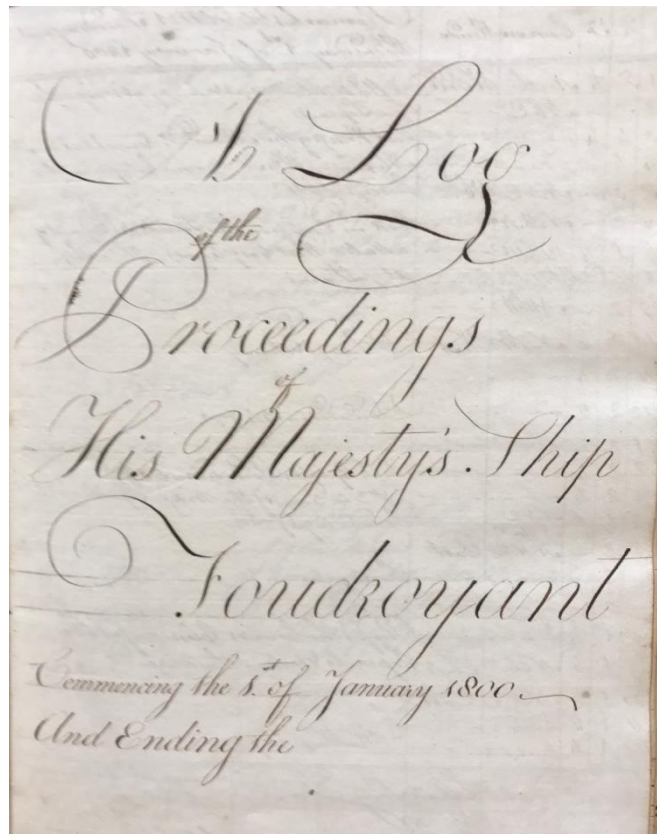 A Log
of the
Proceedings
of
His Majesty's Ship
Foudroyant
Commencing the 1st of January 1800
And Ending the